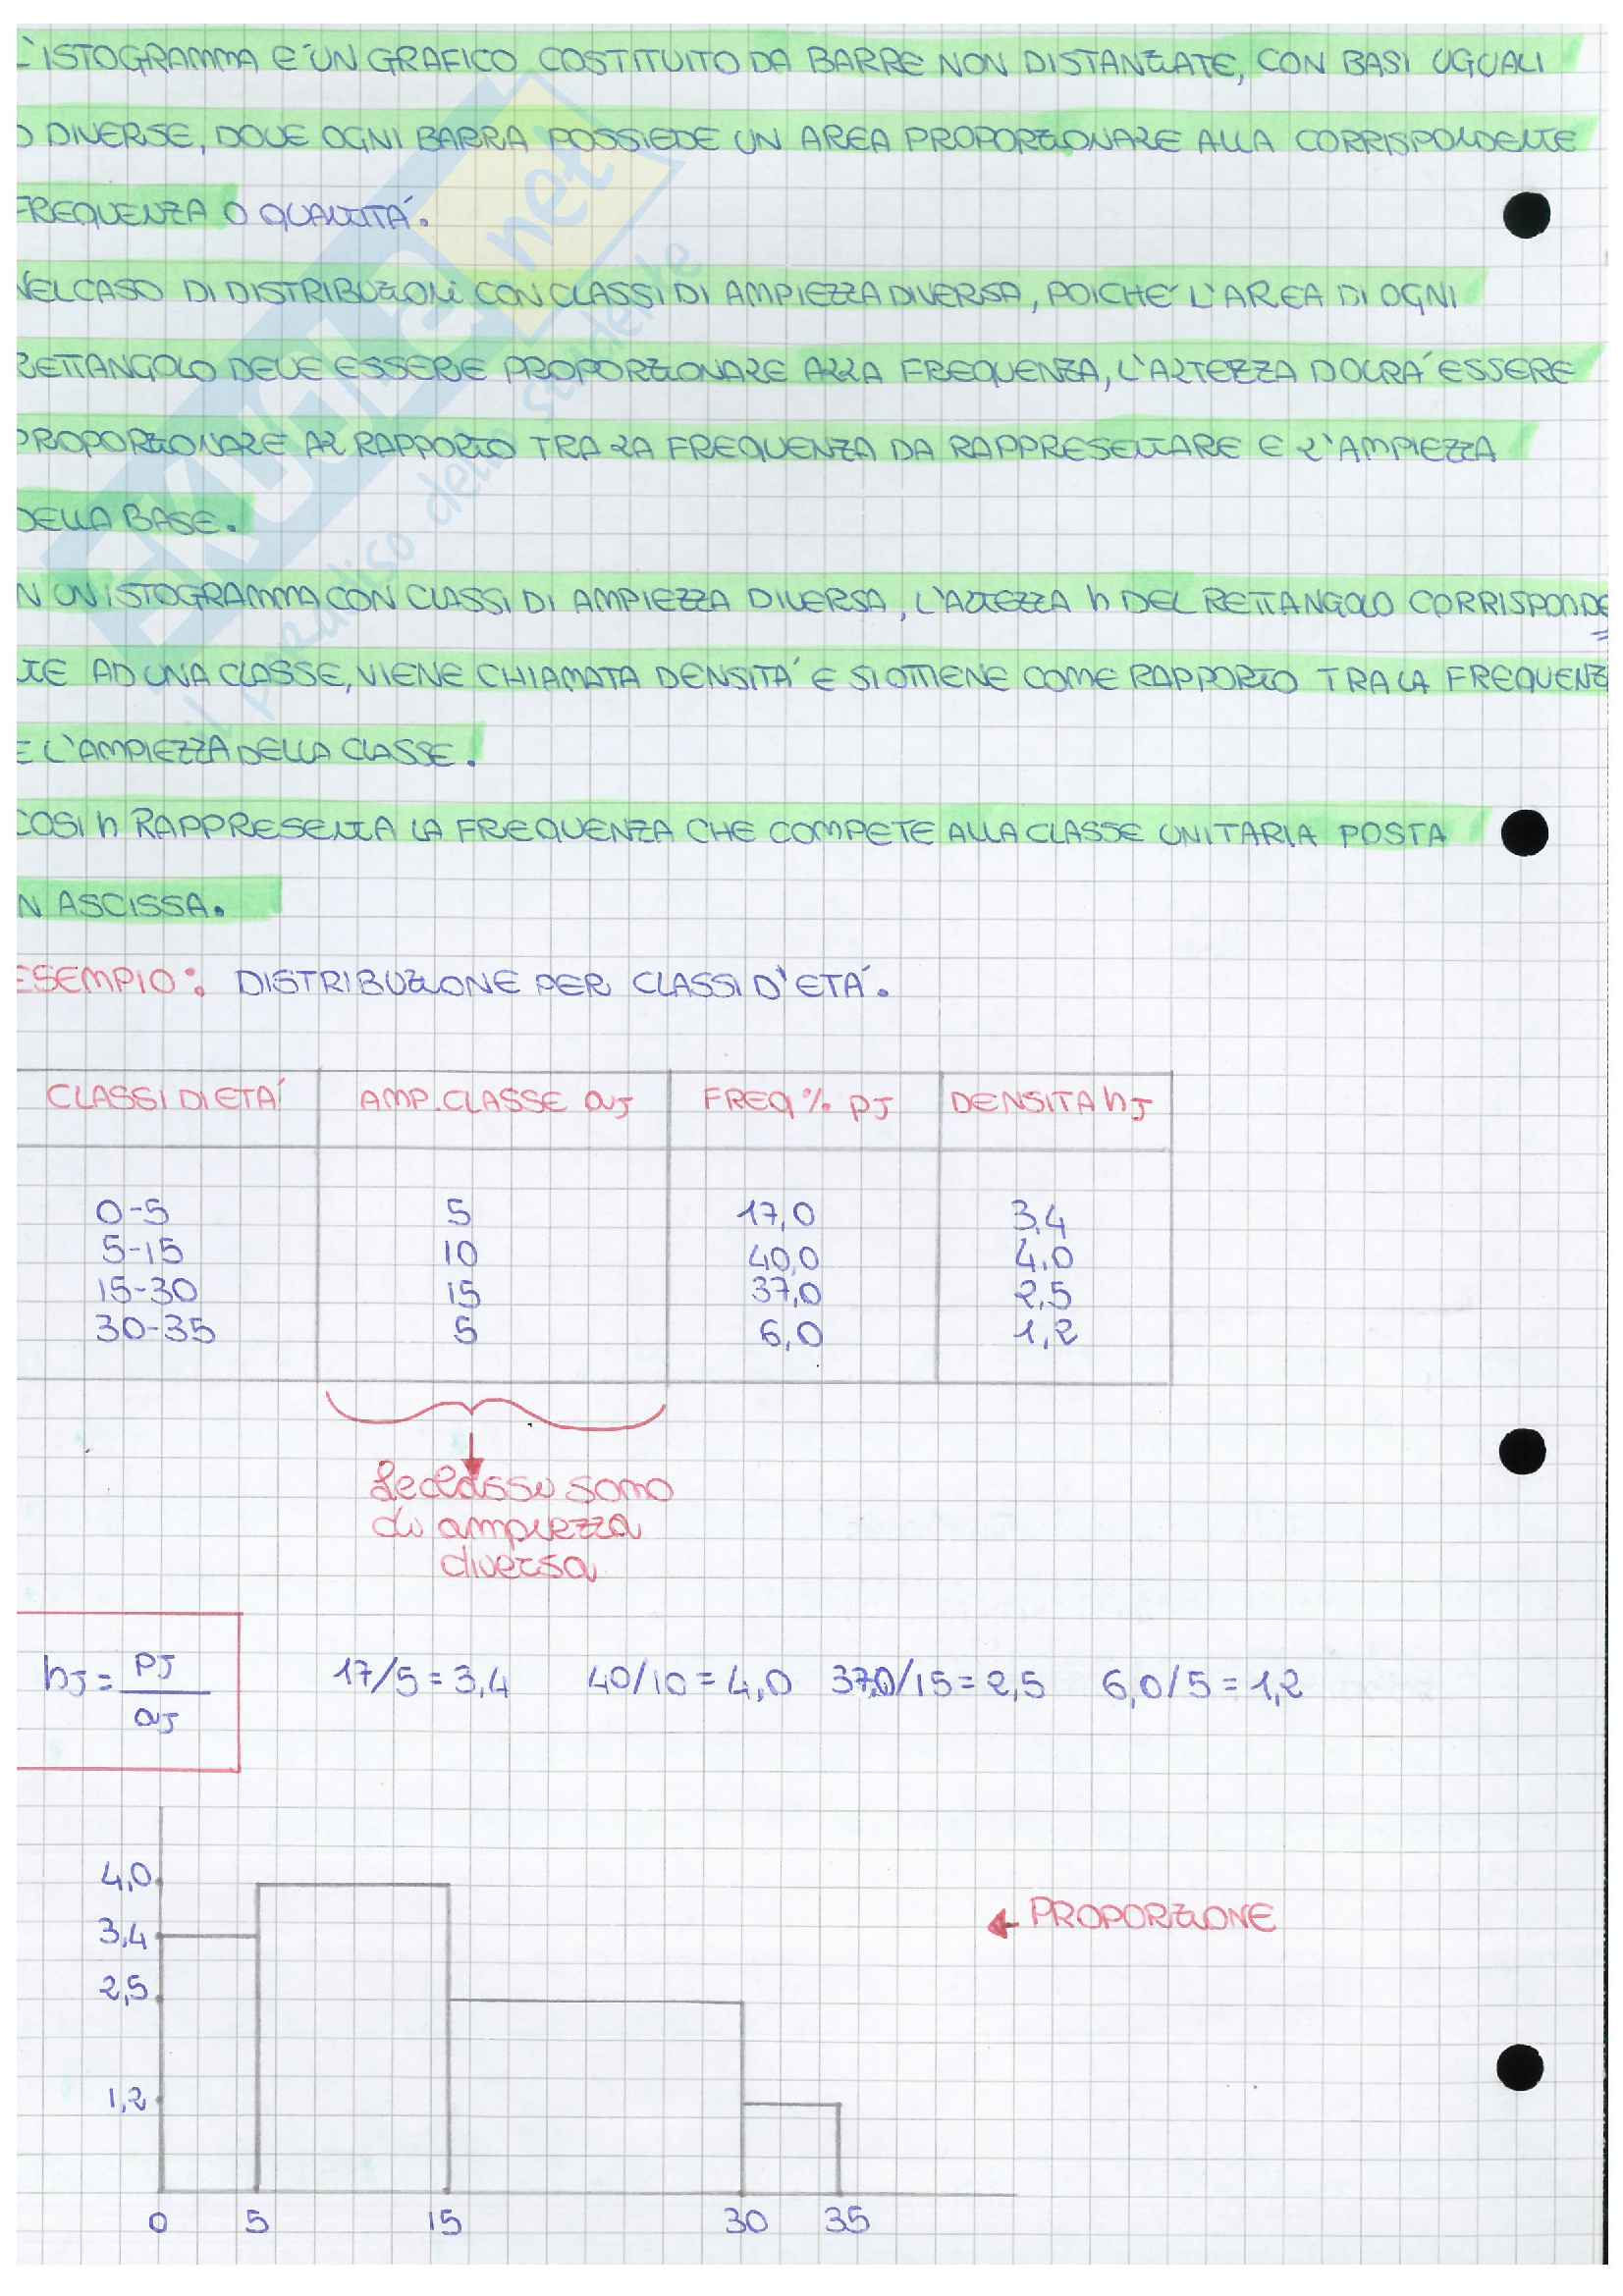 L'ISTOGRAMMA E' UN GRAFICO COSTITUITO DA BARRE NON DISTANZIATE, CON BASI UGUALI
O DIVERSE, DOVE OGNI BARRA POSSIEDE UN AREA PROPORZIONALE ALLA CORRISPONDENTE
FREQUENZA O QUANTITÁ.
NEL CASO DI DISTRIBUZIONI CON CLASSI DI AMPIEZZA DIVERSA, POICHÉ L'AREA DI OGNI
RETTANGOLO DEVE ESSERE PROPORZIONALE ALLA FREQUENZA, L'ALTEZZA DOVRÁ ESSERE
PROPORZIONALE AL RAPPORTO TRA LA FREQUENZA DA RAPPRESENTARE E L'AMPIEZZA
DELLA BASE.
N UN ISTOGRAMMA CON CLASSI DI AMPIEZZA DIVERSA, L'ALTEZZA h DEL RETTANGOLO CORRISPONDE
NTE AD UNA CLASSE, VIENE CHIAMATA DENSITÁ E SI OTTIENE COME RAPPORTO TRA LA FREQUENZ
E L'AMPIEZZA DELLA CLASSE.
COSI h RAPPRESENTA LA FREQUENZA CHE COMPETE ALLA CLASSE UNITARIA POSTA
N ASCISSA.
ESEMPIO: DISTRIBUZIONE PER CLASSI D'ETÁ.
CLASSI DI ETÁ AMP. CLASSE aJ FREQ % pJ DENSITA hJ
0-5 5 17,0 3,4
5-15 10 40,0 4,0
15-30 15 37,0 2,5
30-35 5 6,0 1,2
Le classi sono
di ampiezza
diversa
hJ = pJ / aJ 17/5 = 3,4 40/10 = 4,0 37,0/15 = 2,5 6,0/5 = 1,2
4,0
← PROPORZIONE
3,4
2,5
1,2
0 5 15 30 35
EXVULE.net
il paradiso dello studente